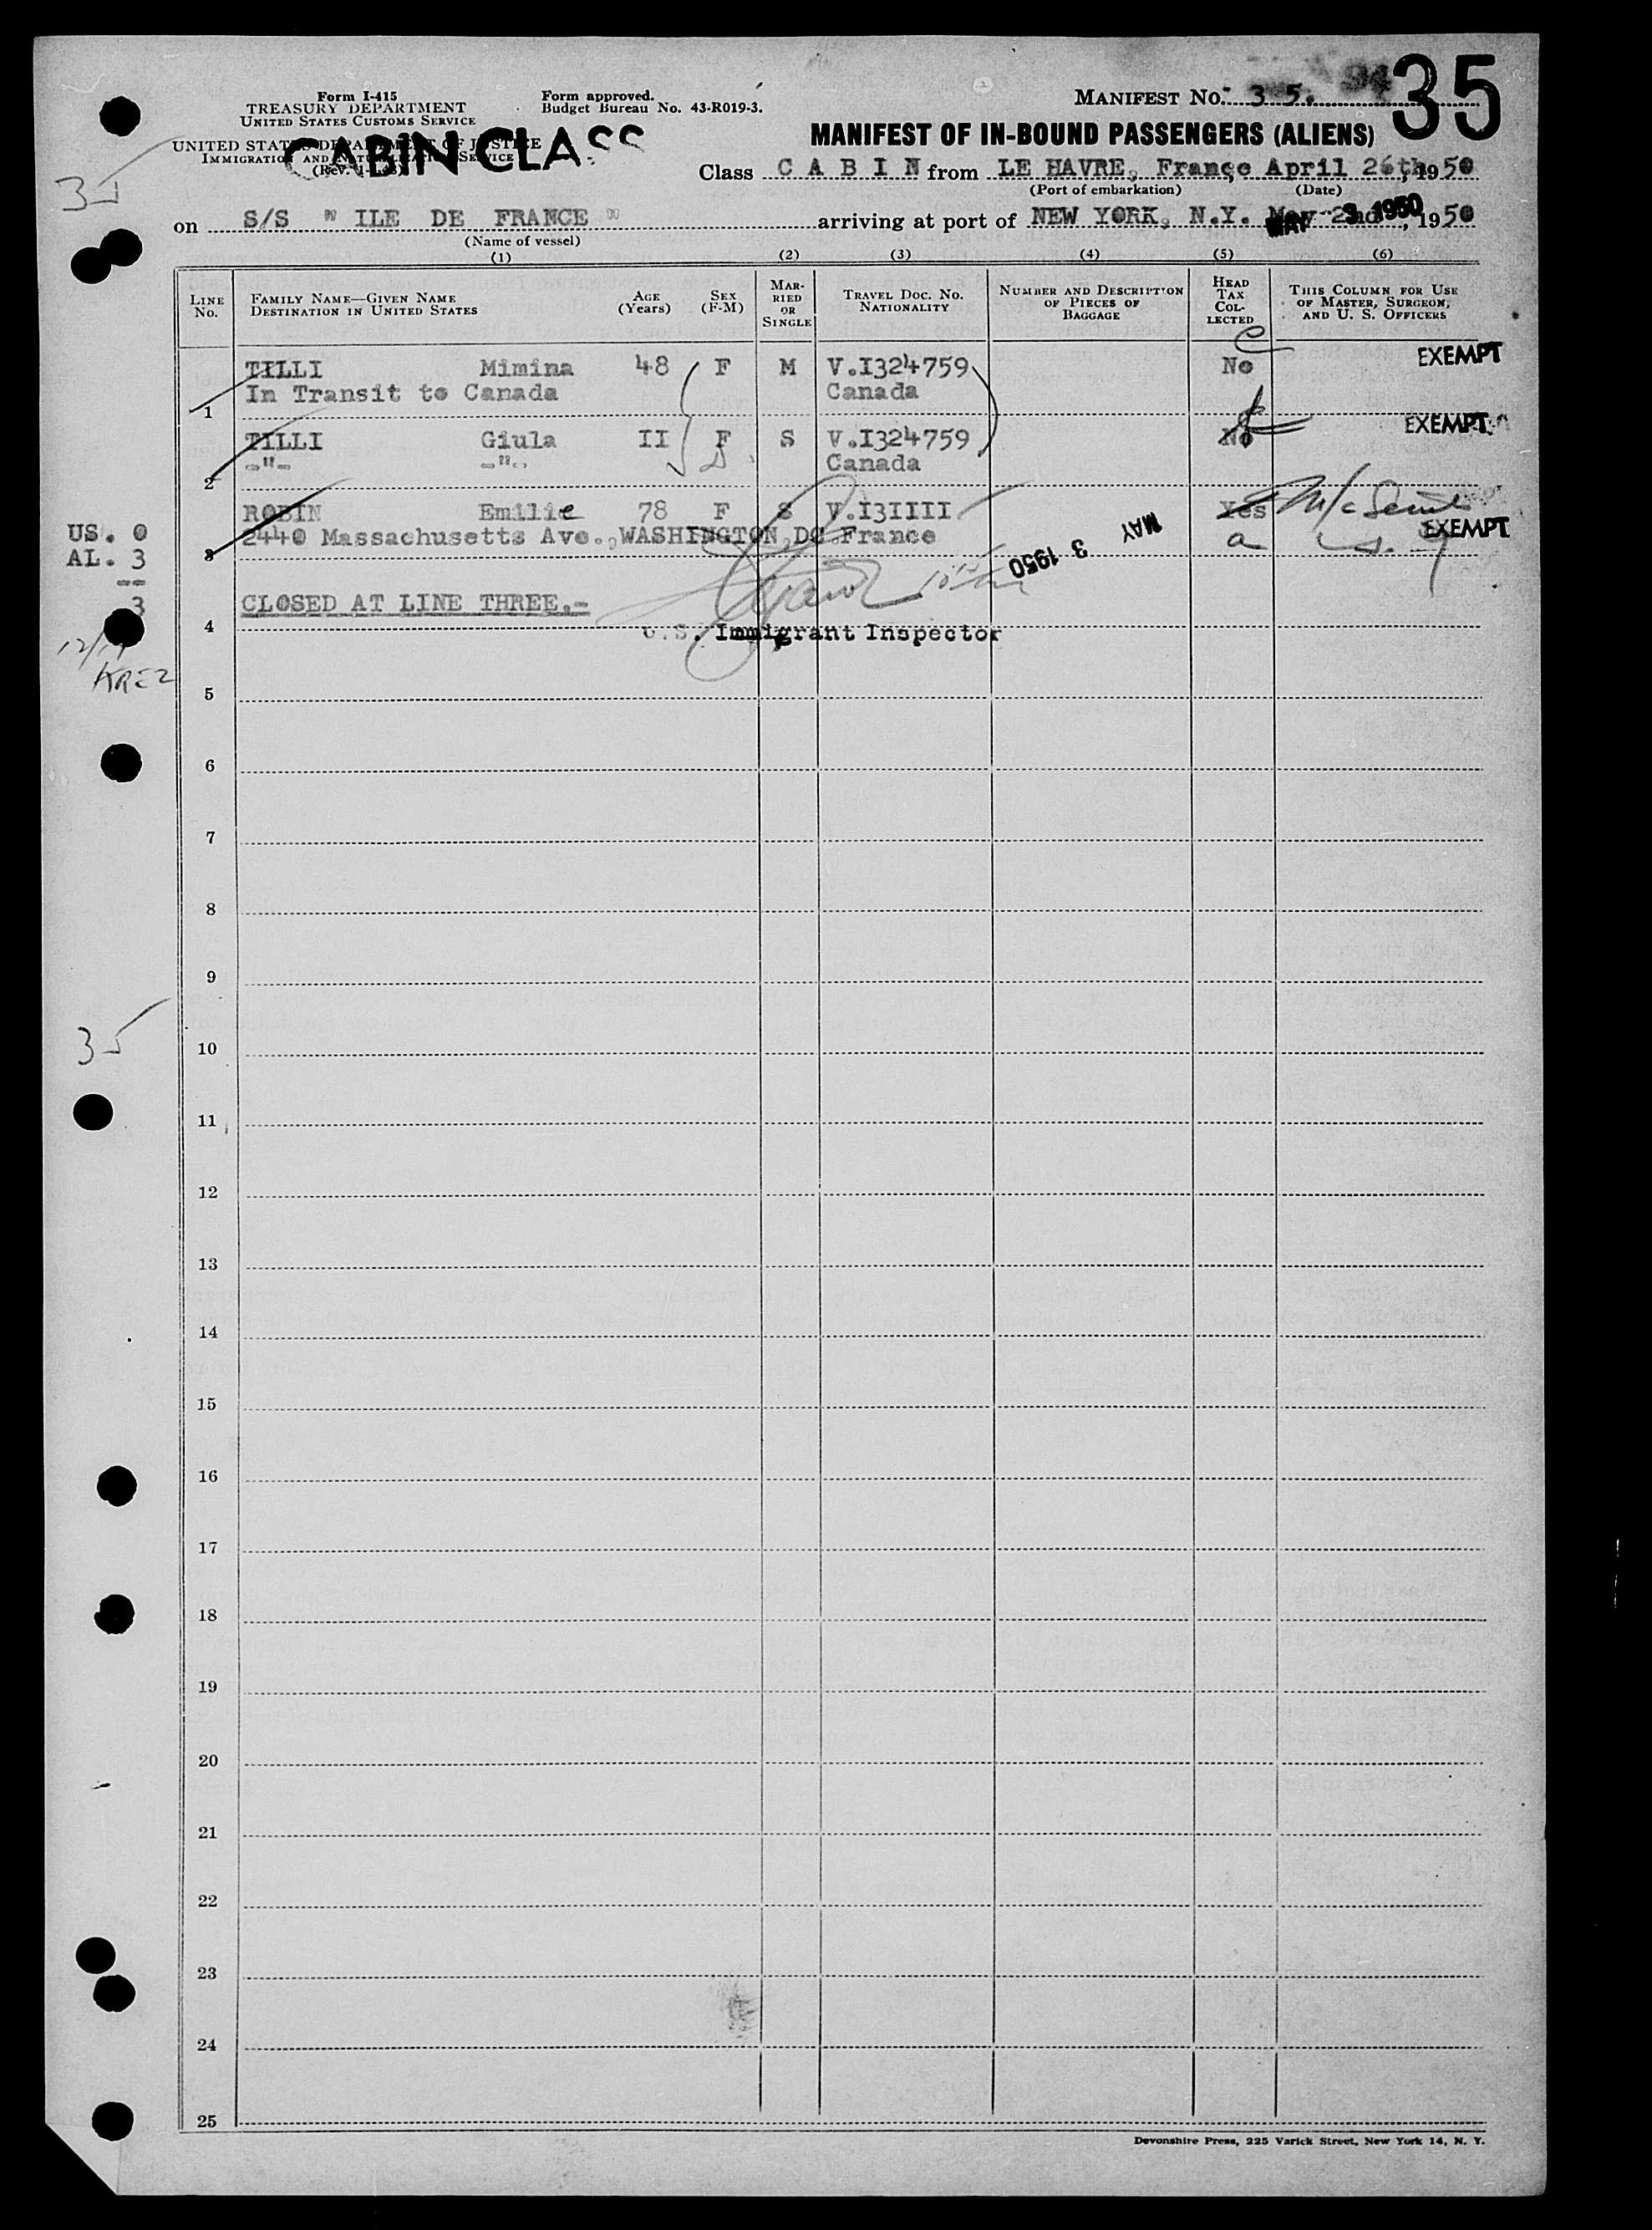 Form I-415
TREASURY DEPARTMENT
UNITED STATES CUSTOMS SERVICE
UNITED STATES DEPARTMENT OF JUSTICE
IMMIGRATION AND NATURALIZATION SERVICE
Form approved.
Budget Bureau No. 43-R019-3.
CABIN CLASS
MANIFEST No. 35.
35
MANIFEST OF IN-BOUND PASSENGERS (ALIENS)
Class C A B I N from LE HAVRE, France April 26th, 1950
(Port of embarkation) (Date)
on S/S " ILE DE FRANCE " arriving at port of NEW YORK, N.Y. May 2nd, 1950
MAY 3 1950
(Name of vessel)
(1) (2) (3) (4) (5) (6)
LINE No. FAMILY NAME—GIVEN NAME DESTINATION IN UNITED STATES AGE (Years) SEX (F-M) MARRIED OR SINGLE TRAVEL DOC. No. NATIONALITY NUMBER AND DESCRIPTION OF PIECES OF BAGGAGE HEAD TAX COLLECTED THIS COLUMN FOR USE OF MASTER, SURGEON, AND U. S. OFFICERS
TILLI Mimina 48 F M V.I324759 No EXEMPT
In Transit to Canada Canada
1
TILLI Giula II F S V.I324759 No EXEMPT
-"- -"- Canada
2
ROBIN Emilie 78 F S V.I3IIII Yes
2440 Massachusetts Ave.,WASHINGTON,DC France EXEMPT
3
MAY 3 1950
US. 0
AL. 3
--
3
CLOSED AT LINE THREE.-
4
U.S. Immigrant Inspector
5
6
7
8
9
35
10
11
12
13
14
15
16
17
18
19
20
21
22
23
24
25
Devonshire Press, 225 Varick Street, New York 14, N. Y.